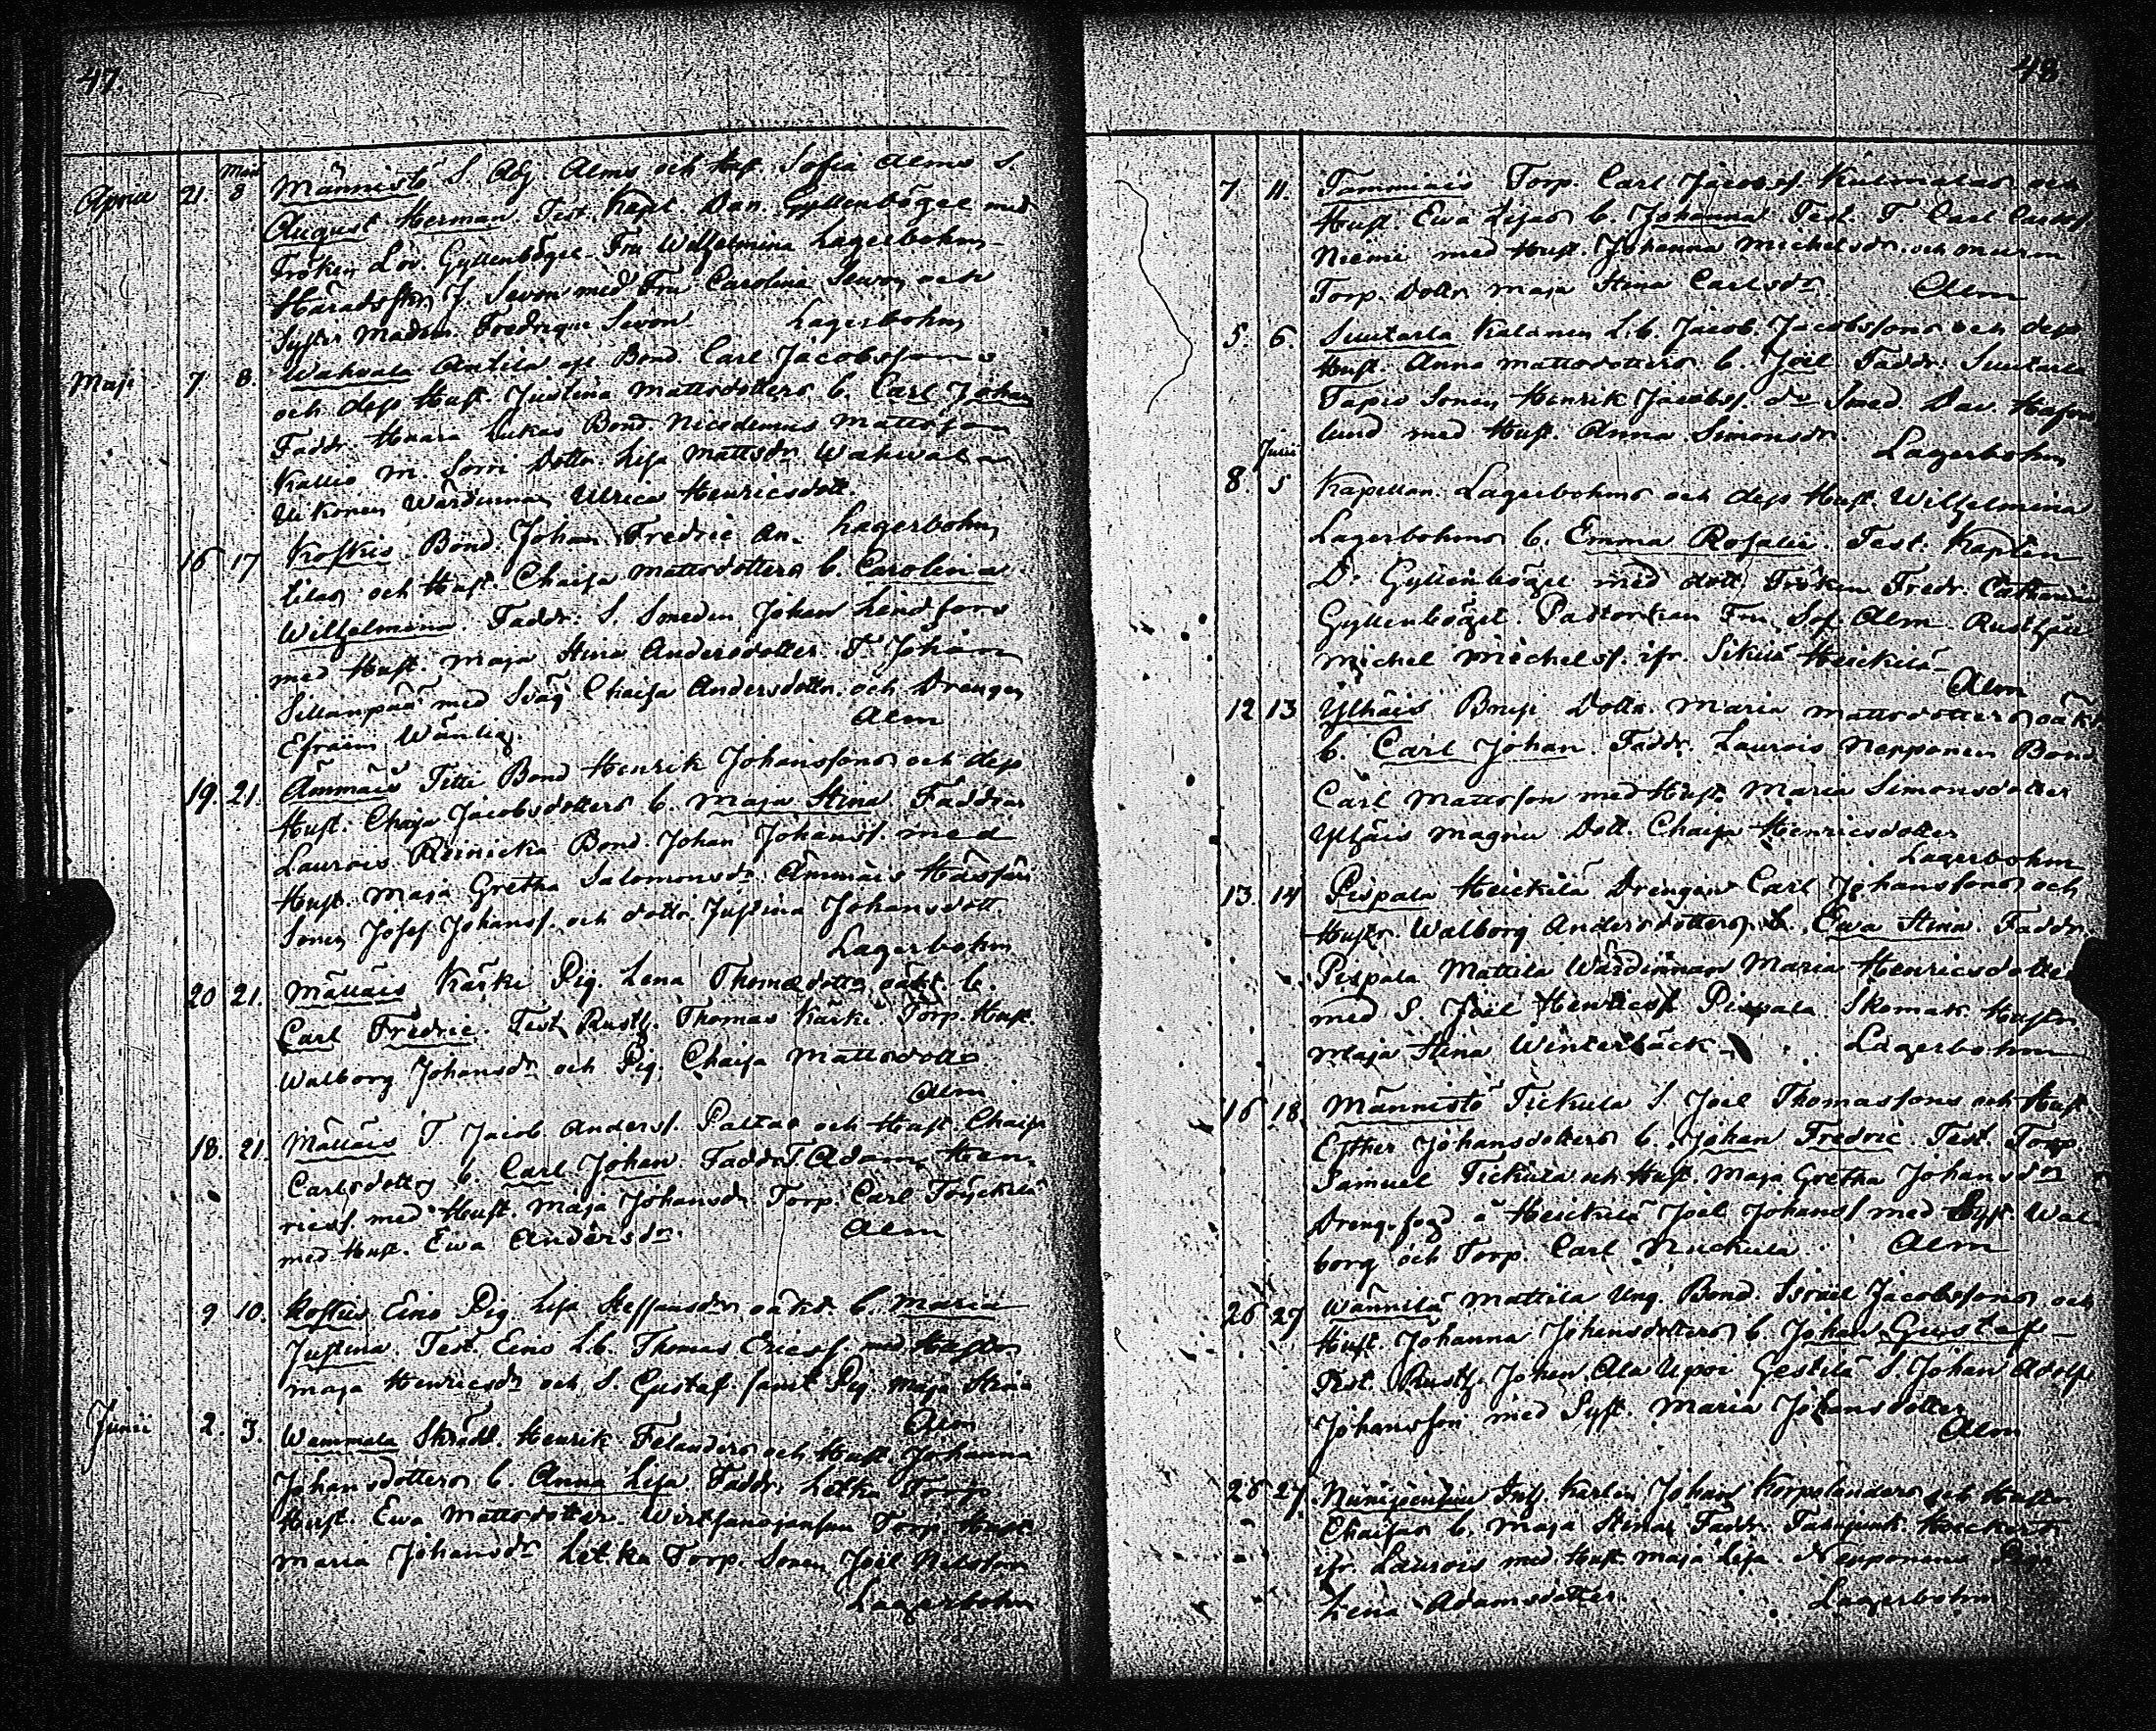 47.
Maii
Aprill 21. 8 Männistö S. Adj. Alms och Hust. Sofia Alms S.
August Herman. Test. Kapt. Dan. Gyllenbögel med
Fröken Lov. Gyllenbögel. Fru Wilhelmina Lagerbohm
Häradsskr. J. Sevon med Fru Carolina Sevon och
Syster Madem. Fredrique Sevon. Lagerbohm
Maji 7 8. Wahvala Antila Bond. Carl Jacobssons
och dess Hust. Justina Mattsdotters b. Carl Johan
Faddr. Lukas Bond. Nicodemus Mattsson
Kallio M. Sorri Dottr. Lisa Mattsdr Wahvala
Ukonen Wärdinnan Ulrica Henricsdott.
Lagerbohm
16 17 Koskis Bond. Johan Fredric An-
tilas och Hust. Chaisa Mattsdotters b. Carolina
Wilhelmina. Faddr: S. Smeden Johan Lindfors
med Hust. Maja Stina Andersdotter. T. Johan
Sillanpää med Sväg. Chaisa Andersdottr. och Drengen
Efraim Wänlig. Alm
19. 21. Ämmäis Titti Bond Henrik Johanssons och dess
Hust. Chaisa Jacobsdotters b. Maja Stina Faddrar
Laurois Reinicka Bond. Johan Johanss. med
Hust. Maja Gretha Salomonsdr. Ämmäis Hässäri
Sonen Josef Johanss. och dottr. Justina Johansdott.
Lagerbohm
20 21. Mälläis Kärki Pig. Lena Thomædotters oäkt b.
Carl Fredric. Test. Rusth. Thomas Kärki. Torp. Hust.
Walborg Johansdr och Pig. Chaisa Mattsdotter
Alm
18. 21. Mälläis T. Jacob Anderss. Paltas och Hust. Chaisa
Carlsdotters b. Carl Johan. Faddr. T. Adam Hen-
ricss. med Hust. Maja Johansdr Torp. Carl Töyckilä
med Hust. Ewa Andersdr. Alm
9 10. Koskis Eino Pig Lisa Steffansdr oäkt b. Maria
Justina. Test. Eino L.b. Thomas Ericss. med Hustr
Maja Henricsdr och S. Gustaf samt Pig. Maja Stina
Alm
Junii 2. 3. Wammala Skrädd. Henrik Felanders och Hust. Johanna
Johansdotters b. Anna Lisa. Faddr. Letka Torp
Hust. Ewa Mattsdotter. Wirtsanojansuu Torp. Hust.
Maria Johansdr Letka Torp. Sonen Joel Nilsson
Lagerbohm
48
7 11. Tammiais Torp. Carl Jacobss. Kulmalas och
Hust. Ewa Lisas b. Johanna Test. T. Carl Carlss.
Niemi med Hust. Johanna Michelsdr. och
Torp. Dottr. Maja Stina Carlsdr. Alm
5. 6. Suutarla Kalanen L.b. Jacob Jacobssons och dess
Hust. Anna Mattsdotters b. Joel Faddr: Suutarla
Tapio Sonen Henrik Jacobss. do Smed. Dav. Hafvers
lund med Hust. Anna Simonsdr.
Lagerbohm
Junii
8. 5 Kapellan Lagerbohms och dess Hust. Wilhelmina
Lagerbohms b. Emma Rosalie. Test. Kapten
D. Gyllenbögel med dott. Fröken Fredr. Catharina
Gyllenbögel. Pastorskan Fru Sof. Alm. Rusthåll.
Michel Michelss. ifr. Sikilä Heickilä
Alm
12 13 Ylhäis Dottr. Maria Mattsdotters oäkt
b. Carl Johan. Faddr. Laurois Nepponen Bond
Carl Mattsson med Hust. Maria Simonsdotter
Ylhäis Dott. Chaisa Henricsdotter
Lagerbohm
13. 14 Pispala Heickilä Drengen Carl Johanssons och
Hustr. Walborg Andersdotters b. Ewa Stina. Faddr.
Pispala Mattila Wärdinnan Maria Henricsdotter
med S. Joel Henricss. Pispala Skomak. Hustr.
Maja Stina Winterbäck. Lagerbohm
16 18. Männistö Tickula S. Joel Thomassons och Hust.
Esther Johansdotters b. Johan Fredric. Test. Torp
Samuel Tickula och Hust. Maja Gretha Johansdr
Drengfogd å Heickilä Joel Johanss. med Syst. Wal-
borg och Torp. Carl Alm
26 27 Wännilä Mattila Ung. Bond. Israel Jacobssons och
Hust. Johanna Johansdotters b. Johan Gustaf
Test. Rusth. Johan Ala Uppoi Gestilä S. Johan Adolf
Johansson med Syst. Maria Johansdotter
Alm
26 27. Johan Korpelanders och Hustr.
Chaisas b. Maja Stina Faddr.
ifr. Laurois med Hust. Maja Lisa. Nepponens Piga
Lena Adamsdotter. Lagerbohm